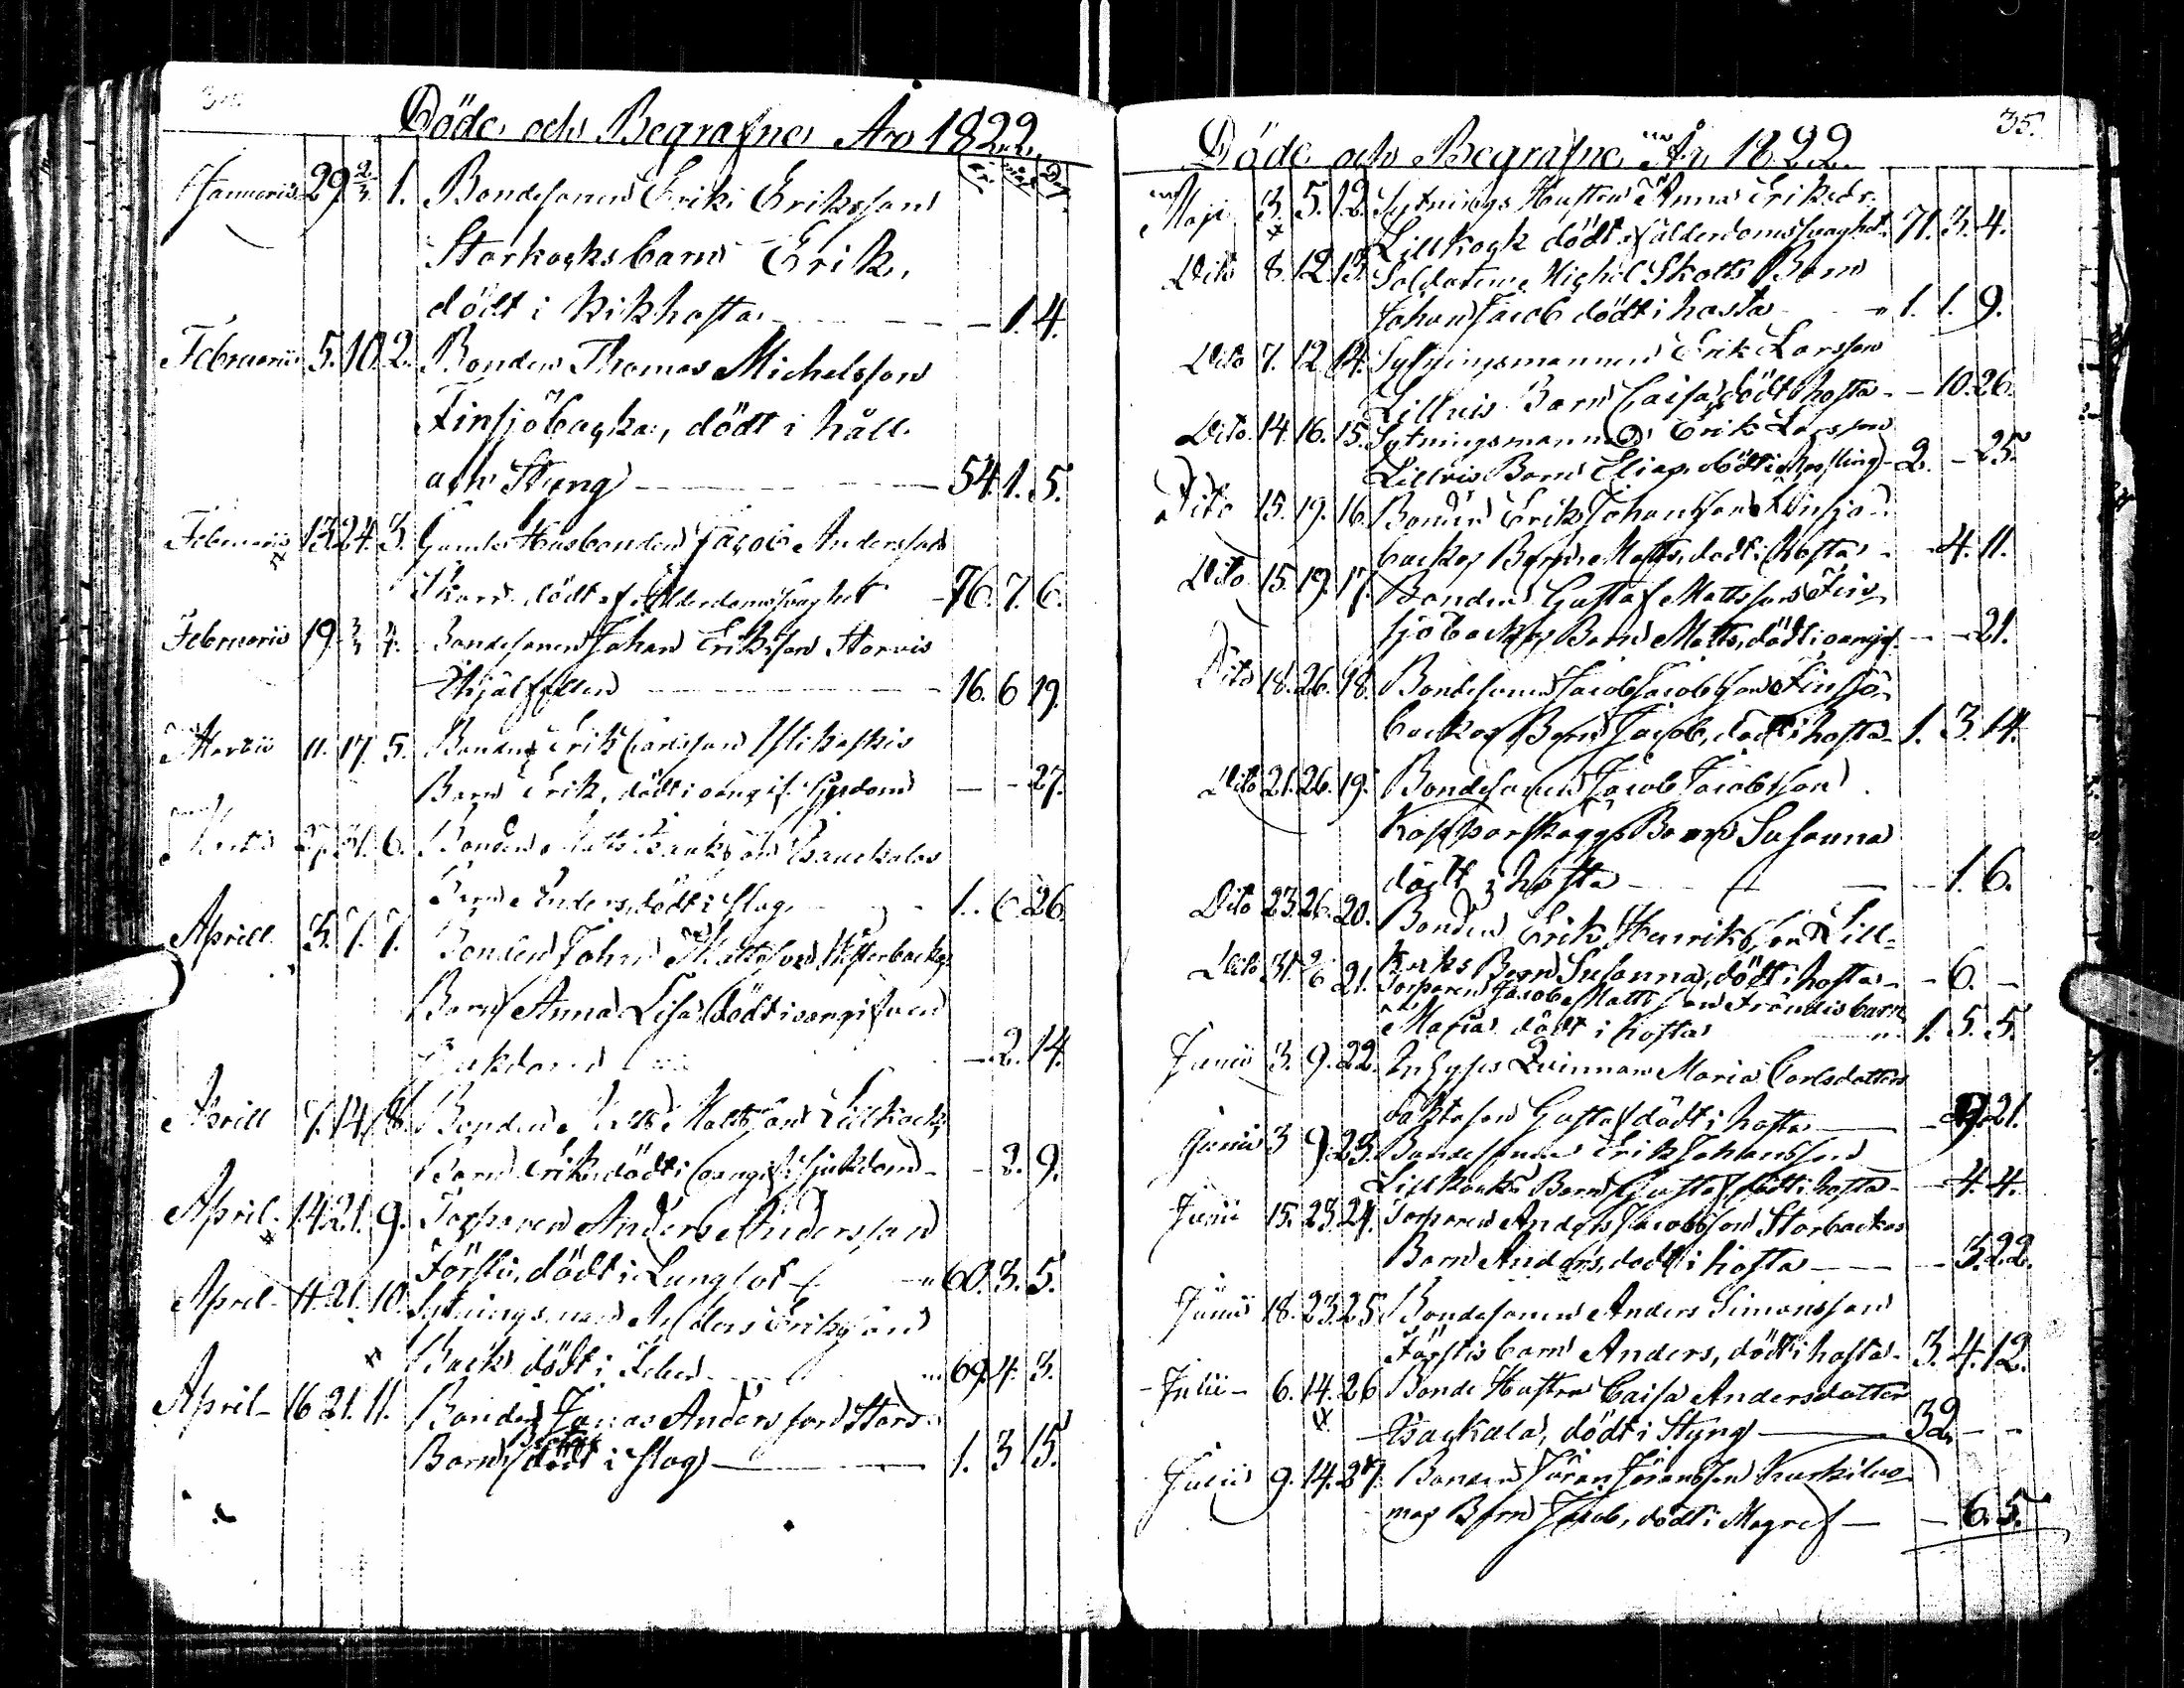 Döde och Begrafne År 1822.
år. mån. Dag.
Januarii 29 2/3. 1. Bondesonen Erik Eriksson
Storkocks barn Erik,
dödt i kikhosta - 1. 4.
Februarii 5. 10. 2. Bonden Thomas Michelsson
Finsjöbacka, dödt i håll
och Styng 54. 1. 5.
Februarii 13 24. 3. Gamle Husbonden Jacob Andersson
dödt af Ålderdomsvaghet 76. 7. 6.
Februarii 19. 3/3 4. Bondesonen Johan Eriksson Storvis
Ihjälfallen 16. 6 19.
Martii 11. 17. 5. Bonden Erik Carlsson
Barn Erik, dödt i oangif. Sjukdom - - 27.
Martii 27. 31. 6. Bonden Matts Isaksson Isackalas
Barn Anders, dödt i Slag 1. 6 26.
Aprill 3. 7. 7. Bonden Johan Mattsson
Barn Anna Lisa dödt i oangifven
Sjukdom - 2. 14.
Aprill 7. 14. 8. Bonden Matts Mattsson Lillkocks
Barn Erik, dödt i oangif. Sjukdom - - 2. 9.
April 14 21. 9. Torparen Anders Andersson
Försti, dödt i Lungsot 60. 3. 5.
April 11. 21. 10. Sytningsman Anders Eriksson
Back dödt i Feber 69. 4. 3.
April 16 21. 11. Bonden Jonas Andersson Stors
Barn dödt i Slag 1. 3 15.
35.
Döde och Begrafne År 1822.
Maji 3. 5. 12. Sytnings Hustrun Anna Eriksdr.
Lillkock dödt af ålderdomsvaghet. 71. 3. 4.
Dito 8. 12. 13. Soldaten Michel Skotts Barn
Johan Jacob dödt i hosta 1. 1. 9.
Dito 7. 12 14. Sytningsmannen Erik Larsson
Lillvis Barn Caisa, dödt i hosta - 10. 26.
Dito 14. 16. 15. Sytningsmannen Erik Larsson
Lillvis Barn Elias dödt i 2. - 25.
Dito 15. 19. 16. Bonden Erik Johansson Finsjö
backas Barn Matts, dödt i hosta - 4. 11.
Dito 15. 19. 17. Bonden Gustaf Mattsson Fin
sjöbackas Barn Matts, dödt i oangif. - - 21.
Dito 18. 26. 18. Bondesonen Jacob Jacobsson Finsjö
backas Barn Jacob, dödt i hosta 1. 3. 14.
Dito 21. 26. 19. Bondesonen Jacob Jacobsson
Barn Susanna
dödt i hosta - 1. 6.
Dito 23. 26. 20. Bonden Erik Henriksson Lill
kocks Barn Susanna, dödt i hosta - 6. -
Dito 31. 2/6 21. Torparen Jacob Mattsson Frändis barn
Maria dödt i hosta 1. 5. 5.
Junii 3. 9. 22. Inhyses Qvinnan Maria Carlsdotters
Gustaf dödt i hosta - 9. 21.
Junii 3 9. 23. Bondesonen Erik Johansson
Lillkocks Barn Gustaf, dödt i hosta - 4. 4.
Junii 15. 23. 24. Torparen Anders Jacobsson Storbackas
Barn Anders, dödt i hosta - 3. 22.
Junii 18. 23. 25. Bondesonen Anders Simonsson
Förstis barn Anders, dödt i hosta 3. 4. 12.
Julii 6. 14. 26 Bonde Hustrun Caisa Andersdotter
Isackala, dödt i Styng 32 - -
Julii 9. 14. 27. Bonden Jöran Jöransson
Barn Jacob, dödt i Magref - 6. 5.